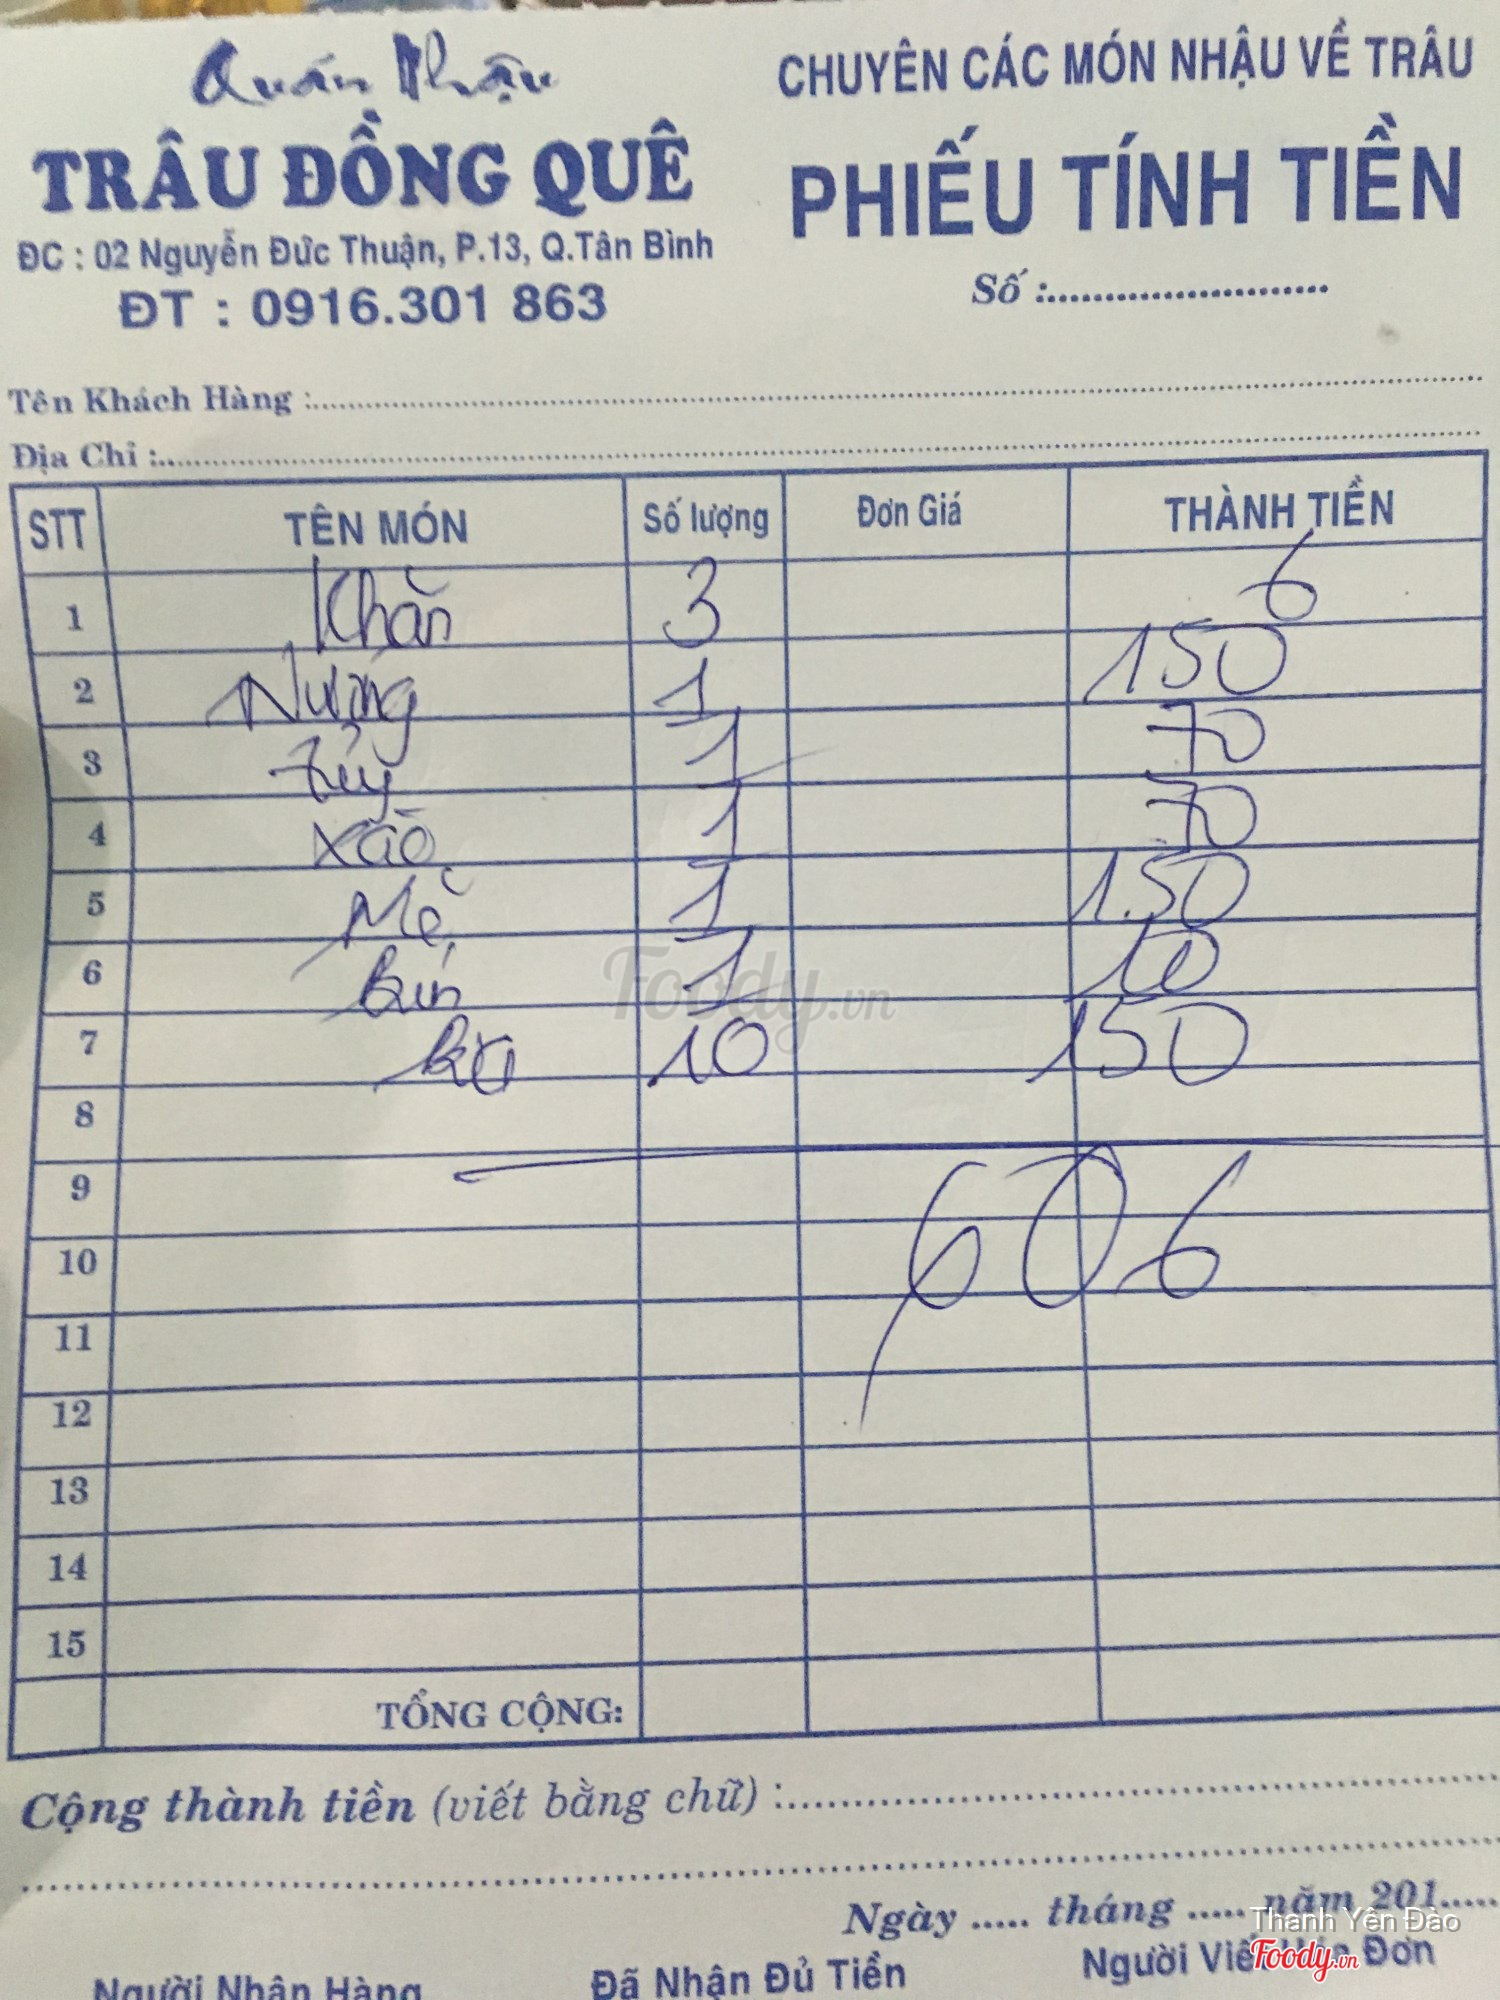 Quán Nhậu
TRÂU ĐỒNG QUÊ
ĐC : 02 Nguyễn Đức Thuận, P.13, Q.Tân Bình
ĐT : 0916.301 863
CHUYÊN CÁC MÓN NHẬU VỀ TRÂU
PHIẾU TÍNH TIỀN
Số :..........................
Tên Khách Hàng :..........................
Địa Chỉ :..........................
STT TÊN MÓN Số lượng Đơn Giá THÀNH TIỀN
1 Khăn 3 6
2 Nướng 1 150
3 1 70
4 Xào 1 70
5 Mẻ 1 150
6 bún 1 10
7 10 150
8
9
606
10
11
12
13
14
15
TỔNG CỘNG:
Cộng thành tiền (viết bằng chữ) :..........................
Ngày ..... tháng ..... năm 201.....
Thanh Yên Đào
Người Nhận Hàng Đã Nhận Đủ Tiền Người Viết Hóa Đơn
Foody.vn
Foody.vn